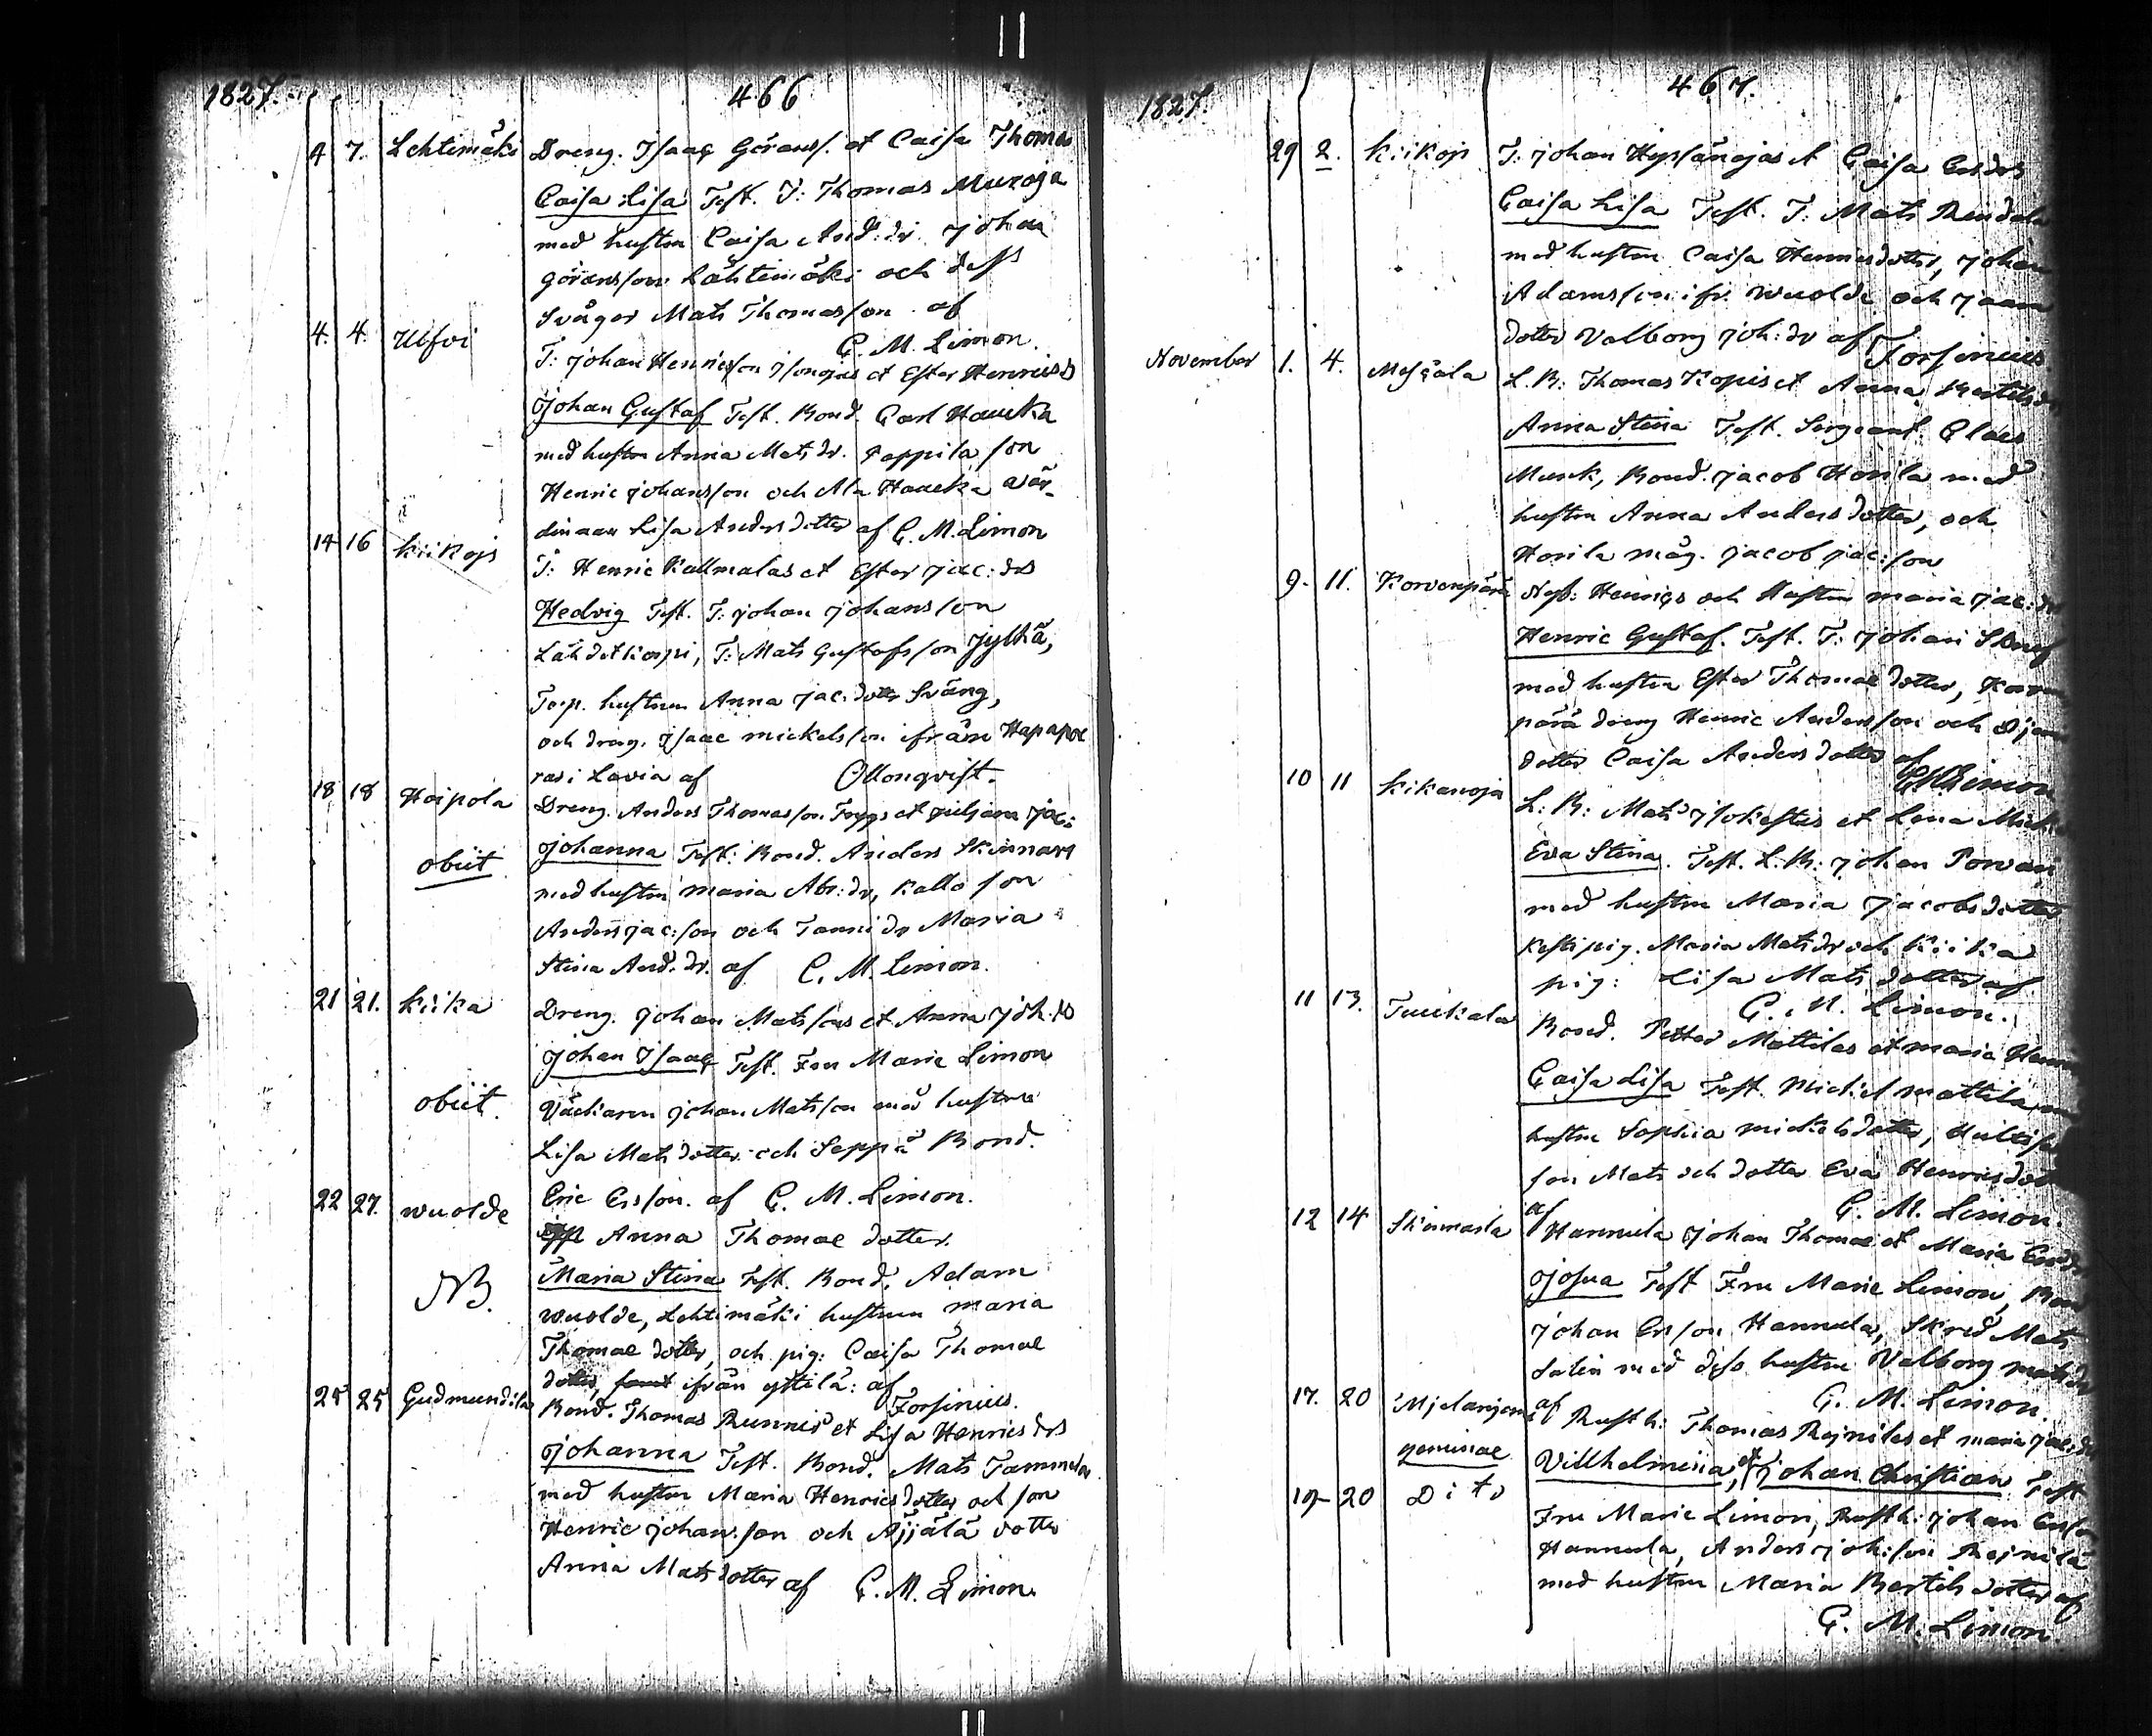 1827. 466
4 7. Lehtimäki Dreng. Isaac Görans/. et Caisa Thomæ
Caisa Lisa Test. T: Thomas Muroja
med hustru Caisa And:dr. Johan
Göransson Lähtimäki och dess
Svåger Mats Thomasson af
C. M. Limon.
4. 4. Ulfvi T: Johan Henricsson et Ester Henricsd
Johan Gustaf Test. Bond. Carl Haucka
med hustru Anna Mats dr. Pappila son
Henric Johansson och Ala Haucka vär-
dinnan Lisa Andersdotter af C. M. Limon
14 16 Kiikojs T: Henric Kallmalas et Ester Jac:drs
Hedvig Test. T: Johan Johansson
Lähdekorpi, T: Mats Gustafsson Jylhä,
Torp. hustrun Anna Jac:dotter Sväng,
och dreng. Isaac Mickelsson ifrån Hapape
ras i Lavia af Ollonqvist.
18 18 Haipola Dreng. Anders Thomasson et Juljana Jac:
obiit Johanna Test: Bond. Anders Skinnari
med hustru Maria Abr:dr, Kallo son
Anders Jac:son och Tommi dr Maria
Stina And.dr. af C. M. Limon.
21 21. Kiika Dreng. Johan Matsons et Anna Joh.ds
Johan Isaac Test. Fru Marie Limon
obiit. Väckaren Johan Matsson med hustru
Lisa Matsdotter och Seppä Bond.
Eric Ersson. af C. M. Limon.
22 27. Wuolde Anna Thomæ dotter.
NB. Maria Stina Test. Bond. Adam
Wuolde, Lehtimäki hustrun Maria
Thomæ dotter, och pig: Caisa Thomæ
dotter, ifrån yttilä: af
Forsinius.
25 25 Gudmundila Bond. Thomas Runnis et Lisa Henrics drs
Johanna Test. Bond. Mats Tammela
med hustru Maria Henricsdotter och son
Henric Johansson och Äijälä dotter
Anna Matsdotter af C. M. Limon.
1827. 467.
29 2. Kiikojs T: Johan Hepsänojas et Caisa Ersdrs
Caisa Lisa Test. T: Mats
med hustru Caisa Henricsdotter, Johan
Adamsson ifr. Wuolde och
dotter Valborg Joh:dr af Forsinius
November 1. 4. L. B: Thomas Kopis et Anna Bertilsdr
Anna Stina Test. Sergeant Claes
Munck, Bond. Jacob Horila med
hustru Anna Andersdotter, och
Horila måg. Jacob Jac:son
9. 11. Korvenpärä Nyb: Henrics och Hustru Maria Jac:dr
Henric Gustaf. Test. T: Johan
med hustru Ester Thomædotter, Korven
pärä dreng Henric Andersson och
dotter Caisa Andersdotter af
C M Limon
10 11 Kikanoja L: B: Mats et Lena Mick
Eva Stina. Test. L. B: Johan Porvari
med hustru Maria Jacobsdotter
Kesti pig. Maria Matsdr och Kiika
pig: Lisa Mats dotter af
C. M. Limon.
11 13. Tuckala Bond. Petter Mattilas et Maria Henri
Caisa Lisa Test. Mickel Mattila m
hustru Sophia Mickelsdotter,
son Mats och dotter Eva Henricsdott
af C. M. Limon.
12 14 Skinnarla Hannula Johan Thomæ et Maria Ersdr
Josua Test Fru Marie Limon, Bon
Johan Ersson Hannula, Skred. Mats
Salin med dess hustru Valborg Matsdr
af C. M. Limon.
17. 20 Rusth: Thomas Rejnilas et Maria Jac:dr
geminae Villhelmina, et Johan Christian Test
19 20 Dito Fru Marie Limon, Rusth: Johan Ersson
Hannula, Anders Joh:son Rejnilä
med hustru Maria Bertilsdotter af
C. M. Limon.